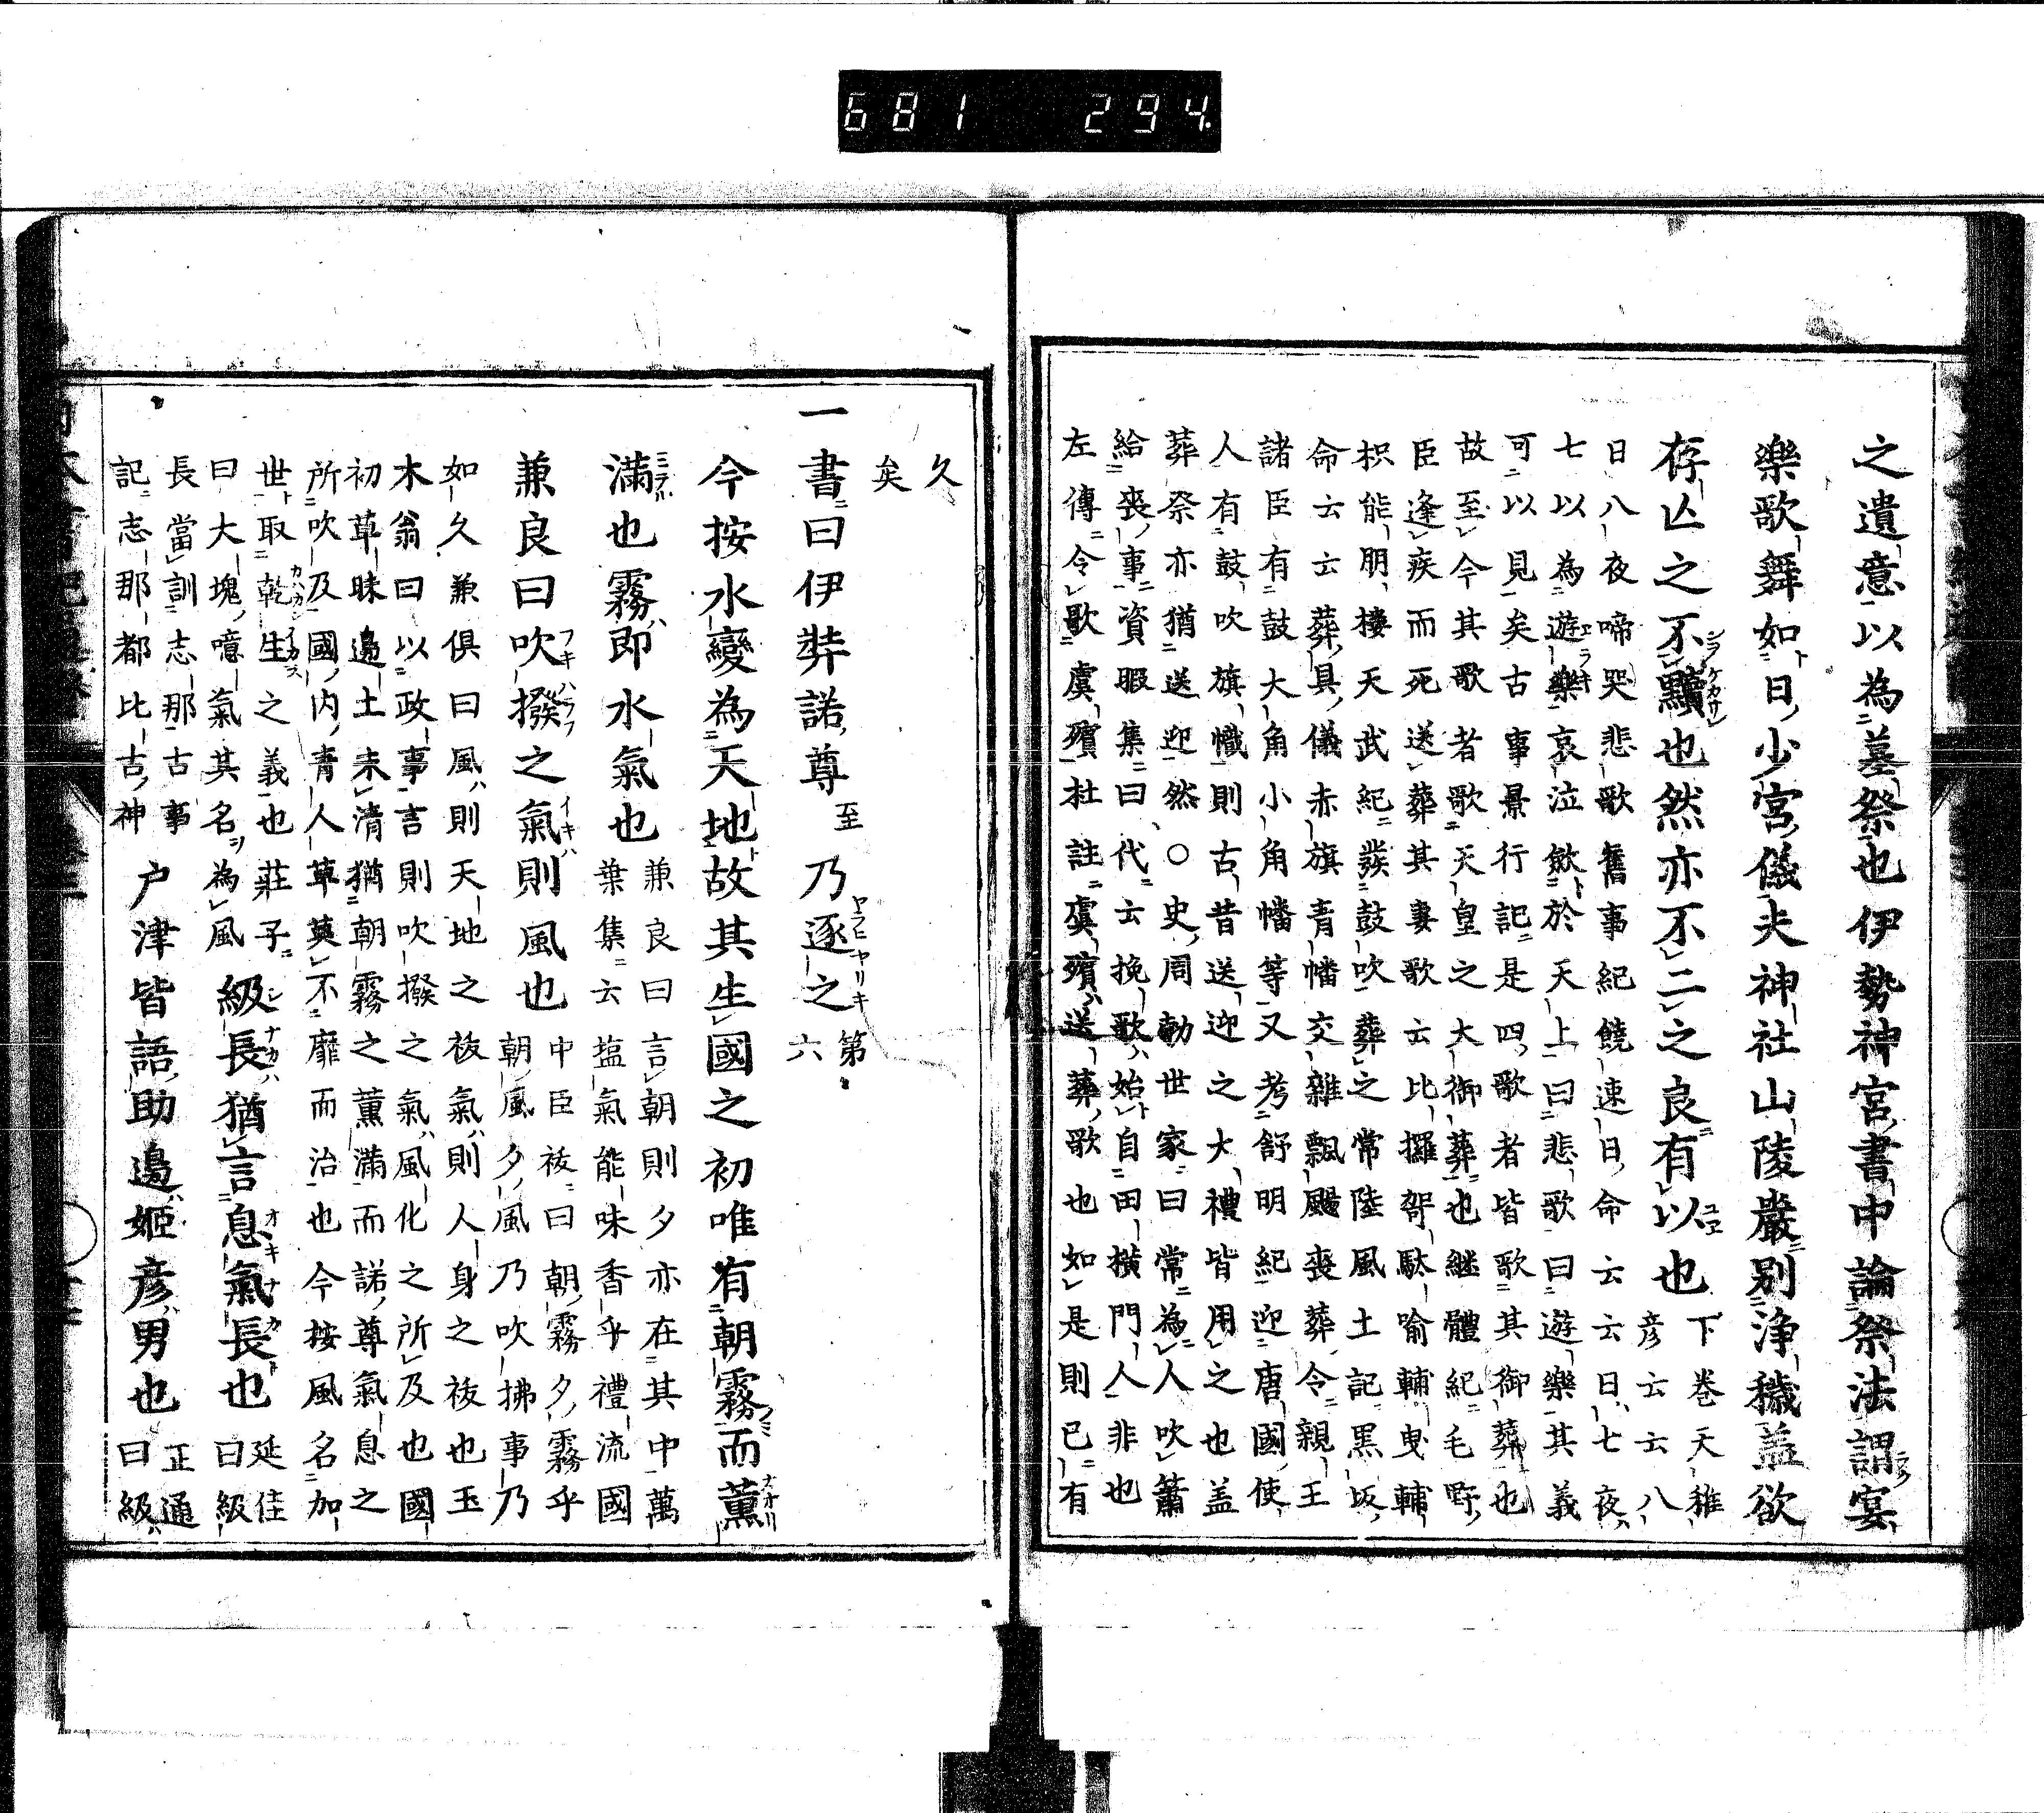 681 294
之遺意以為墓祭也伊勢神宮書中論祭法謂宴
樂歌舞如日少宮儀夫神社山陵嚴別淨穢盖欲
存亾之不黷也然亦不二之良有以也
下巻天稚
彦云云八
日八夜啼哭悲歌舊事紀饒速日命云云日七夜
七以為遊樂哀泣歛於天上曰悲歌曰遊樂其義
可以見矣古事景行記是四歌者皆歌其御葬也
故至今其歌者歌天皇之大御葬也継體紀毛野
臣逢疾而死送葬其妻歌云比攞哿駄喻輔曳輔
枳能朋樓天武紀發鼓吹葬之常陸風土記黒坂
命云云葬具儀赤旗青幡交雜飄颺喪葬令親王
諸臣有鼓大角小角幡等又考舒明紀迎唐國使
人有鼓吹旗幟則古昔送迎之大禮皆用之也盖
葬祭亦猶送迎然○史周勃世家曰常為人吹簫
給喪事資暇集曰代云挽歌始自田横門人非也
左傳令歌虞殯杜註虞殯送葬歌也如是則已有
久
矣
一書曰伊弉諾尊至乃逐之第六
今按水變為天地故其生國之初唯有朝霧而薫
滿也霧即水氣也
兼良曰言朝則夕亦在其中萬
葉集云塩氣能味香乎禮流國
兼良曰吹撥之氣則風也
中臣祓曰朝霧夕霧乎
朝風夕風乃吹拂事乃
如久兼俱曰風則天地之祓氣則人身之祓也玉
木翁曰以政事言則吹撥之氣風化之所及也國
初草昧邉土未清猶朝霧之薫滿而諾尊氣息之
所吹及國内青人草莫不靡而治也今按風名加
世取乾生之義也莊子
曰大塊噫氣其名為風
級長猶言息氣長也
延佳
曰級
長當訓志那古事
記志那都比古神
户津皆語助邉姬彦男也
正通
曰級